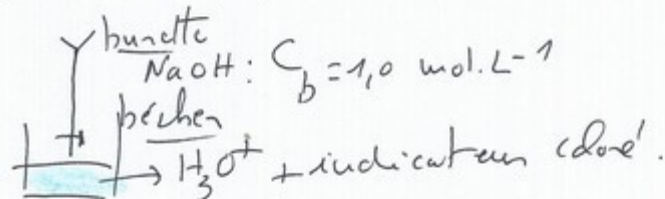 burette
NaOH : Cb = 1,0 mol.L-1
bécher
H3O+ + indicateur coloré.